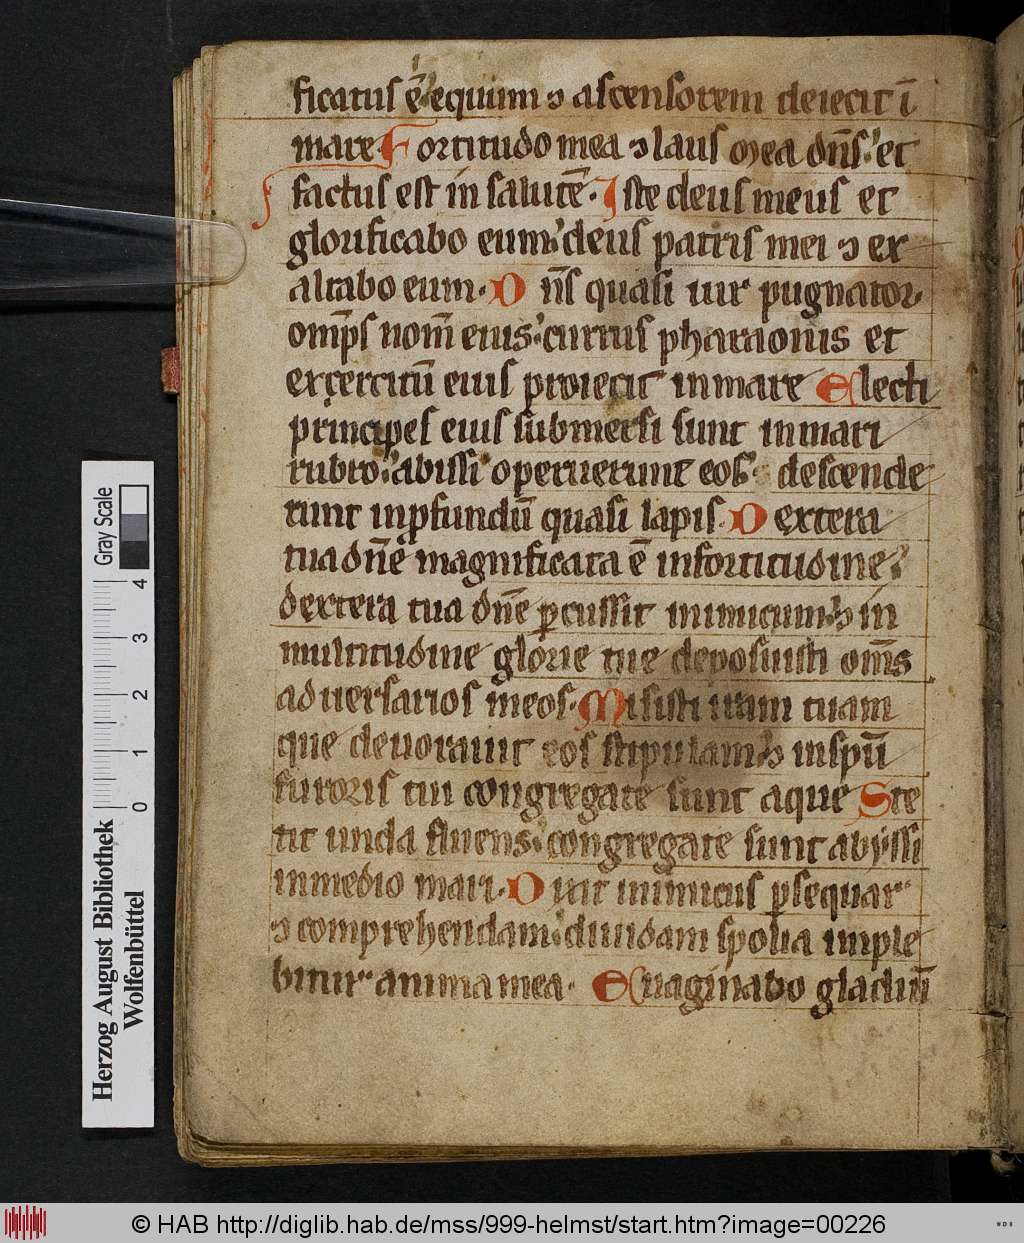 ficatus ē equum ⁊ ascensorem deiecit ī
mare Fortitudo mea ⁊ laus mea dn̄s et
factus est in salutē. Iste deus meus et
glorificabo eum deus patris mei ⁊ ex
altabo eum. Dn̄s quasi uir pugnator
omp̄s nom̄ eius currus pharaonis et
exercitū eius proiecit in mare Electi
principes eius submersi sunt in mari
rubro abissi operuerunt eos descende
runt in pfundū quasi lapis. Dextera
tua dn̄e magnificata ē in fortitudine
dextera tua dn̄e ꝑcussit inimicum ⁊ in
multitudine glorie tue deposuisti om̄s
aduersarios meos. Misisti iram tuam
que deuorauit eos stipulam ⁊ in spū
furoris tui congregate sunt aque Ste
tit unda fluens congregate sunt abyssi
in medio mari. Dixit inimicus ꝑsequar
⁊ comprehendam diuidam spolia imple
bitur anima mea. Euaginabo gladiū
Herzog August Bibliothek
Wolfenbüttel
0 1 2 3 4
Gray Scale
© HAB http://diglib.hab.de/mss/999-helmst/start.htm?image=00226